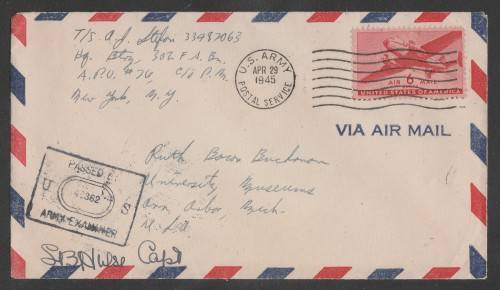 T/5 A.J. Stefan 33487063
Hq. Btry, 302 F.A. Bn.
A.P.O. #76, c/o P.M.
New York, N.Y.
U.S. ARMY
APR 29
1945
POSTAL SERVICE
6
AIR MAIL
UNITED STATES OF AMERICA
VIA AIR MAIL
Ruth Bacon Buchanan
University Museums
Ann Arbor, Mich.
U.S.A.
PASSED
U S
ARMY EXAMINER
Capt